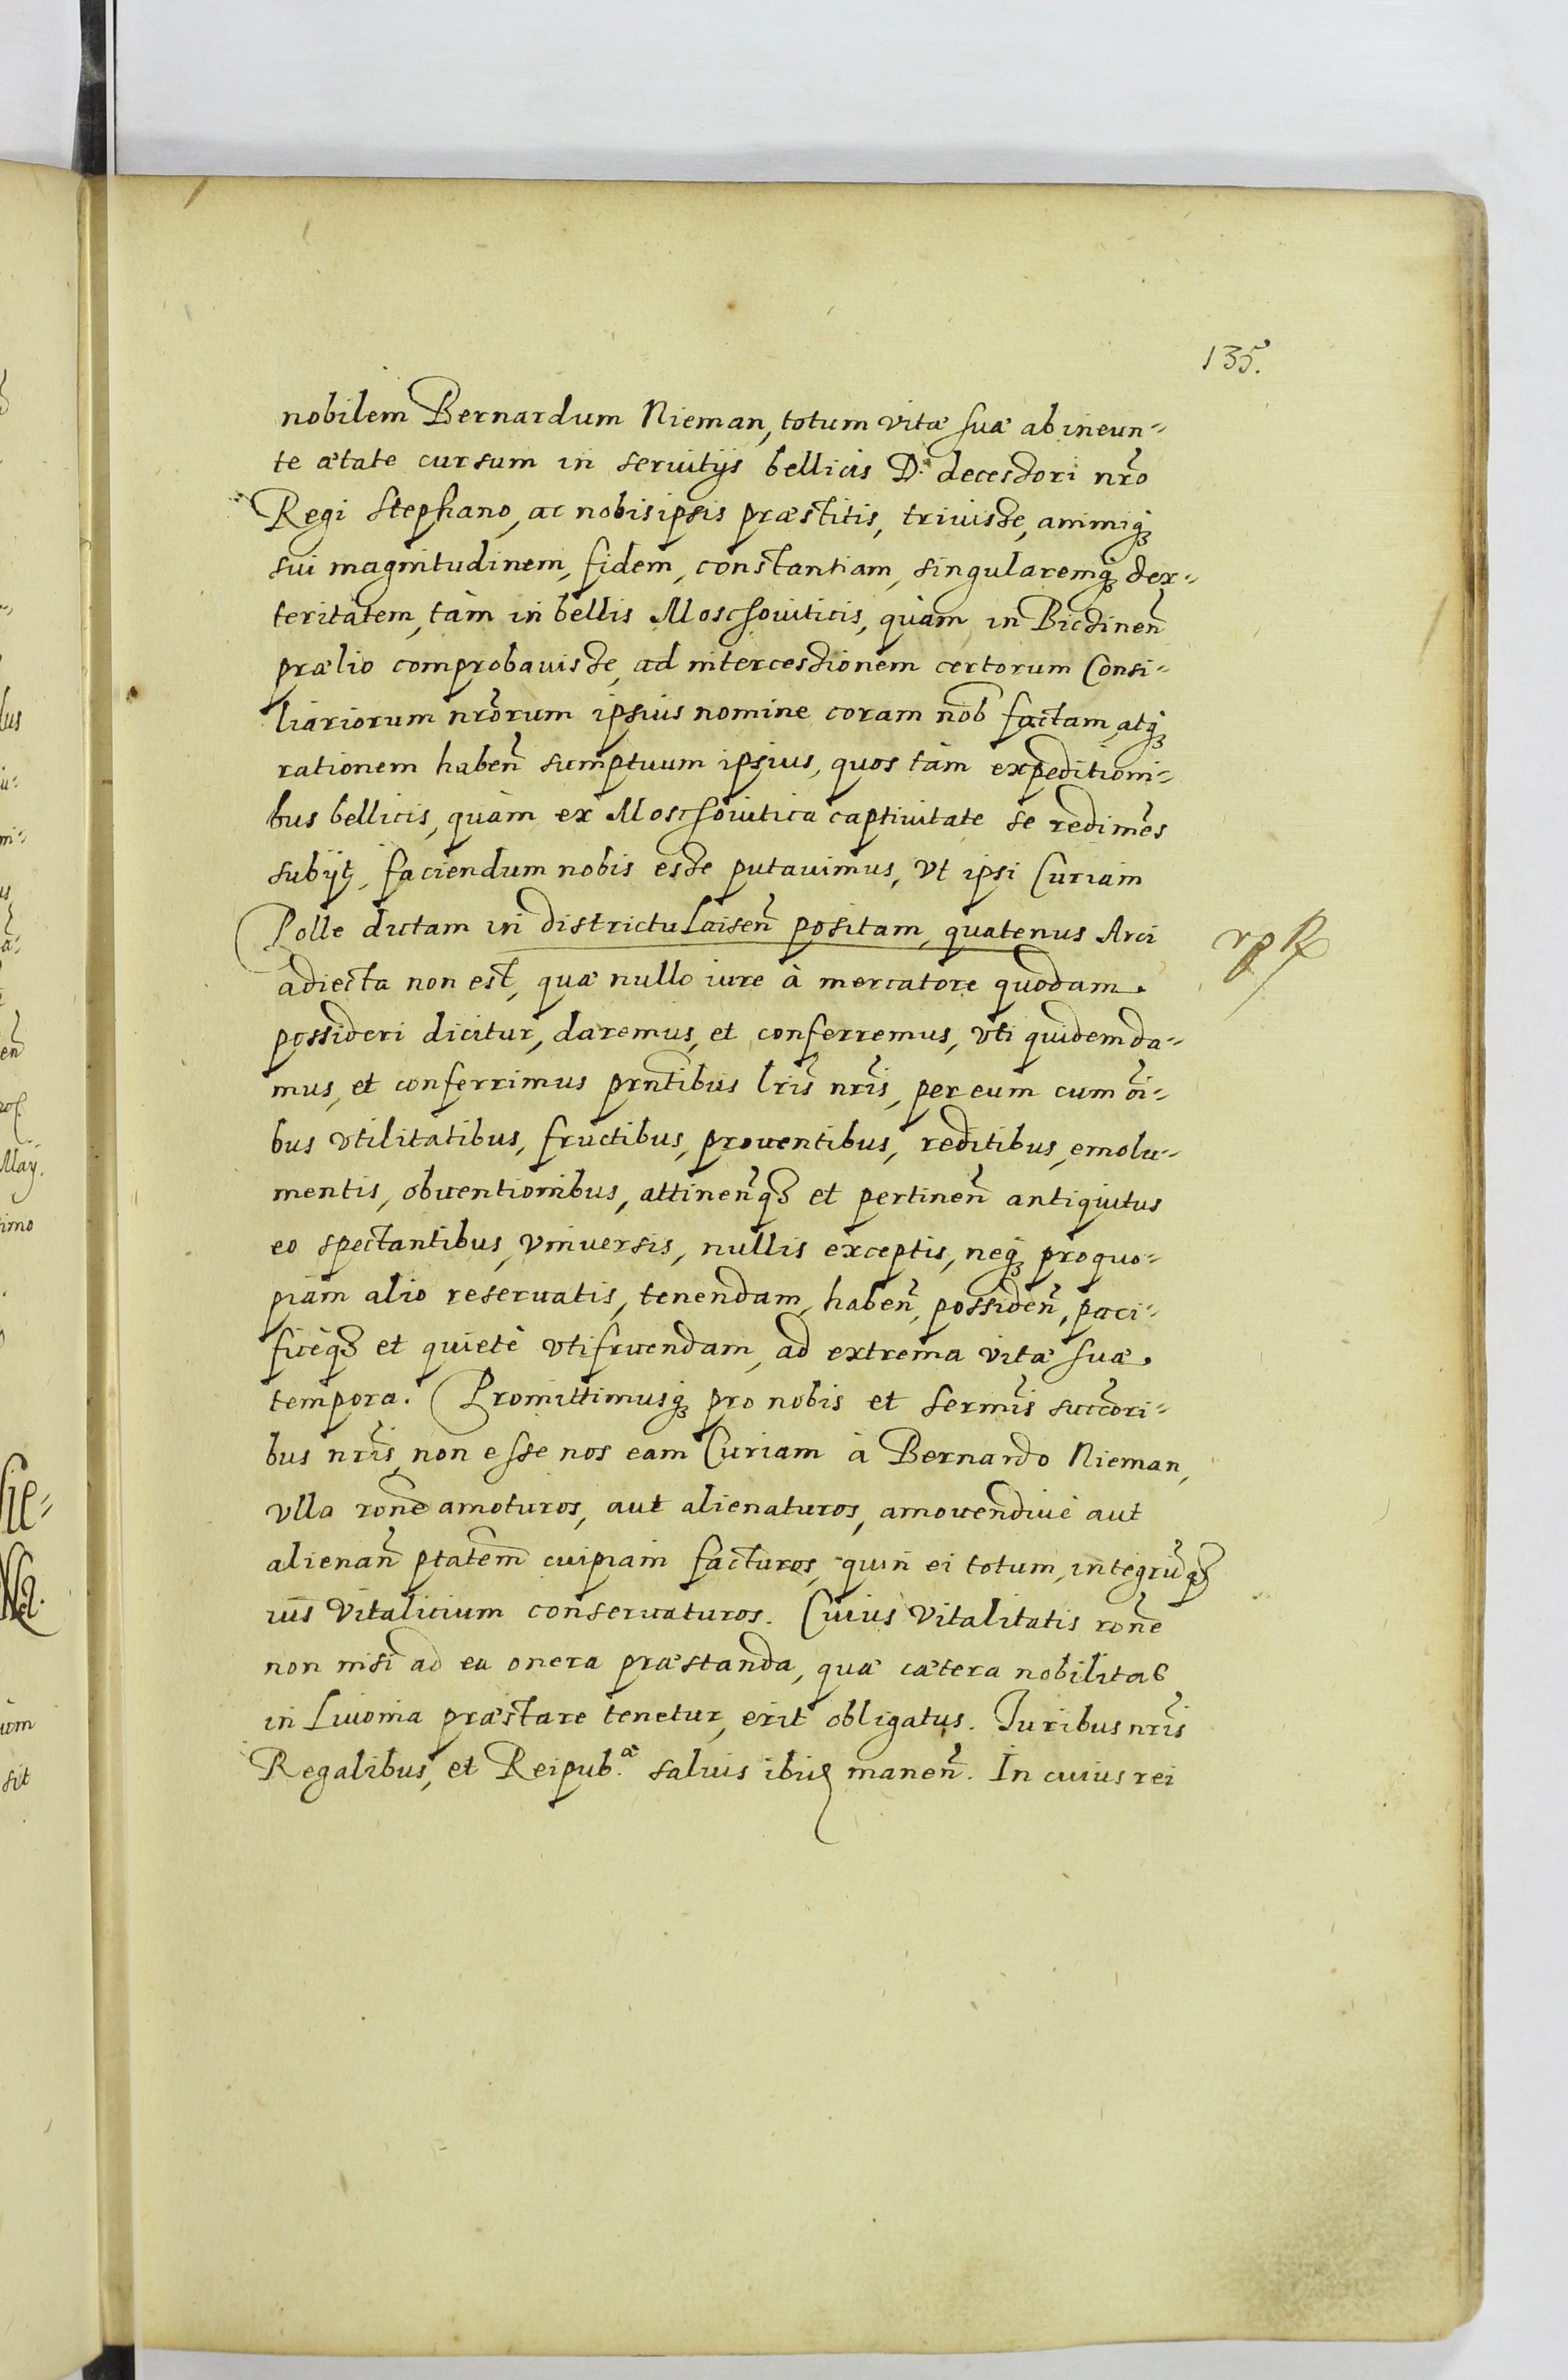 135.
nobilem Bernardum Nieman, totum vitæ suæ ab ineun=
te ætate cursum in seruitijs bellicis D. decessori nr̃o
Regi Stephano, ac nobis ipsis præstitis, triuisse, animiq;
sui magnitudinem, fidem, constantiam, singularemq; dex=
teritatem, tàm in bellis Moschouiticis, quàm in Bicinen̄
prælio comprobauisse, ad intercessionem certorum Consi=
liariorum nr̃orum ipsius nomine coram nob̃ factam, atq;
rationem haben̄ sumptuum ipsius, quos tàm expeditioni=
bus bellicis, quàm ex Moschouitica captiuitate se redimẽs
subijt, faciendum nobis esse putauimus, Vt ipsi Curiam
Polle dictam in districtu Laisen̄ positam, quatenus Arci
adiecta non est, quæ nullo iure à mercatore quodam
possideri dicitur, daremus, et conferremus, vti quidem da=
mus, et conferrimus prñtibus lr̃is nr̃is, per eum cum oĩ=
bus vtilitatibus, fructibus, prouentibus, reditibus, emolu=
mentis, obuentionibus, attinen̄q3 et pertinen̄ antiquitus
eo spectantibus, vniuersis, nullis exceptis, neq; pro quo=
piam alio reseruatis, tenendam, haben̄, possiden̄, paci=
ficèq3 et quietè vtifruendam, ad extrema vitæ suæ
tempora. Promittimusq; pro nobis et Sermĩs succõri=
bus nr̃is, non esse nos eam Curiam à Bernardo Nieman,
vlla rõne amoturos, aut alienaturos, amouendiue aut
alienan̄ ptãtem cuipiam facturos, quin ei totum, integrũq3
ius Vitalicium conseruaturos. Cuius Vitalitatis rõne
non nisi ad ea onera præstanda, quæ cætera nobilitas
in Liuonia præstare tenetur, erit obligatus. Iuribus nr̃is
Regalibus, et Reipub.æ saluis ibiđ manen̄. In cuius rei